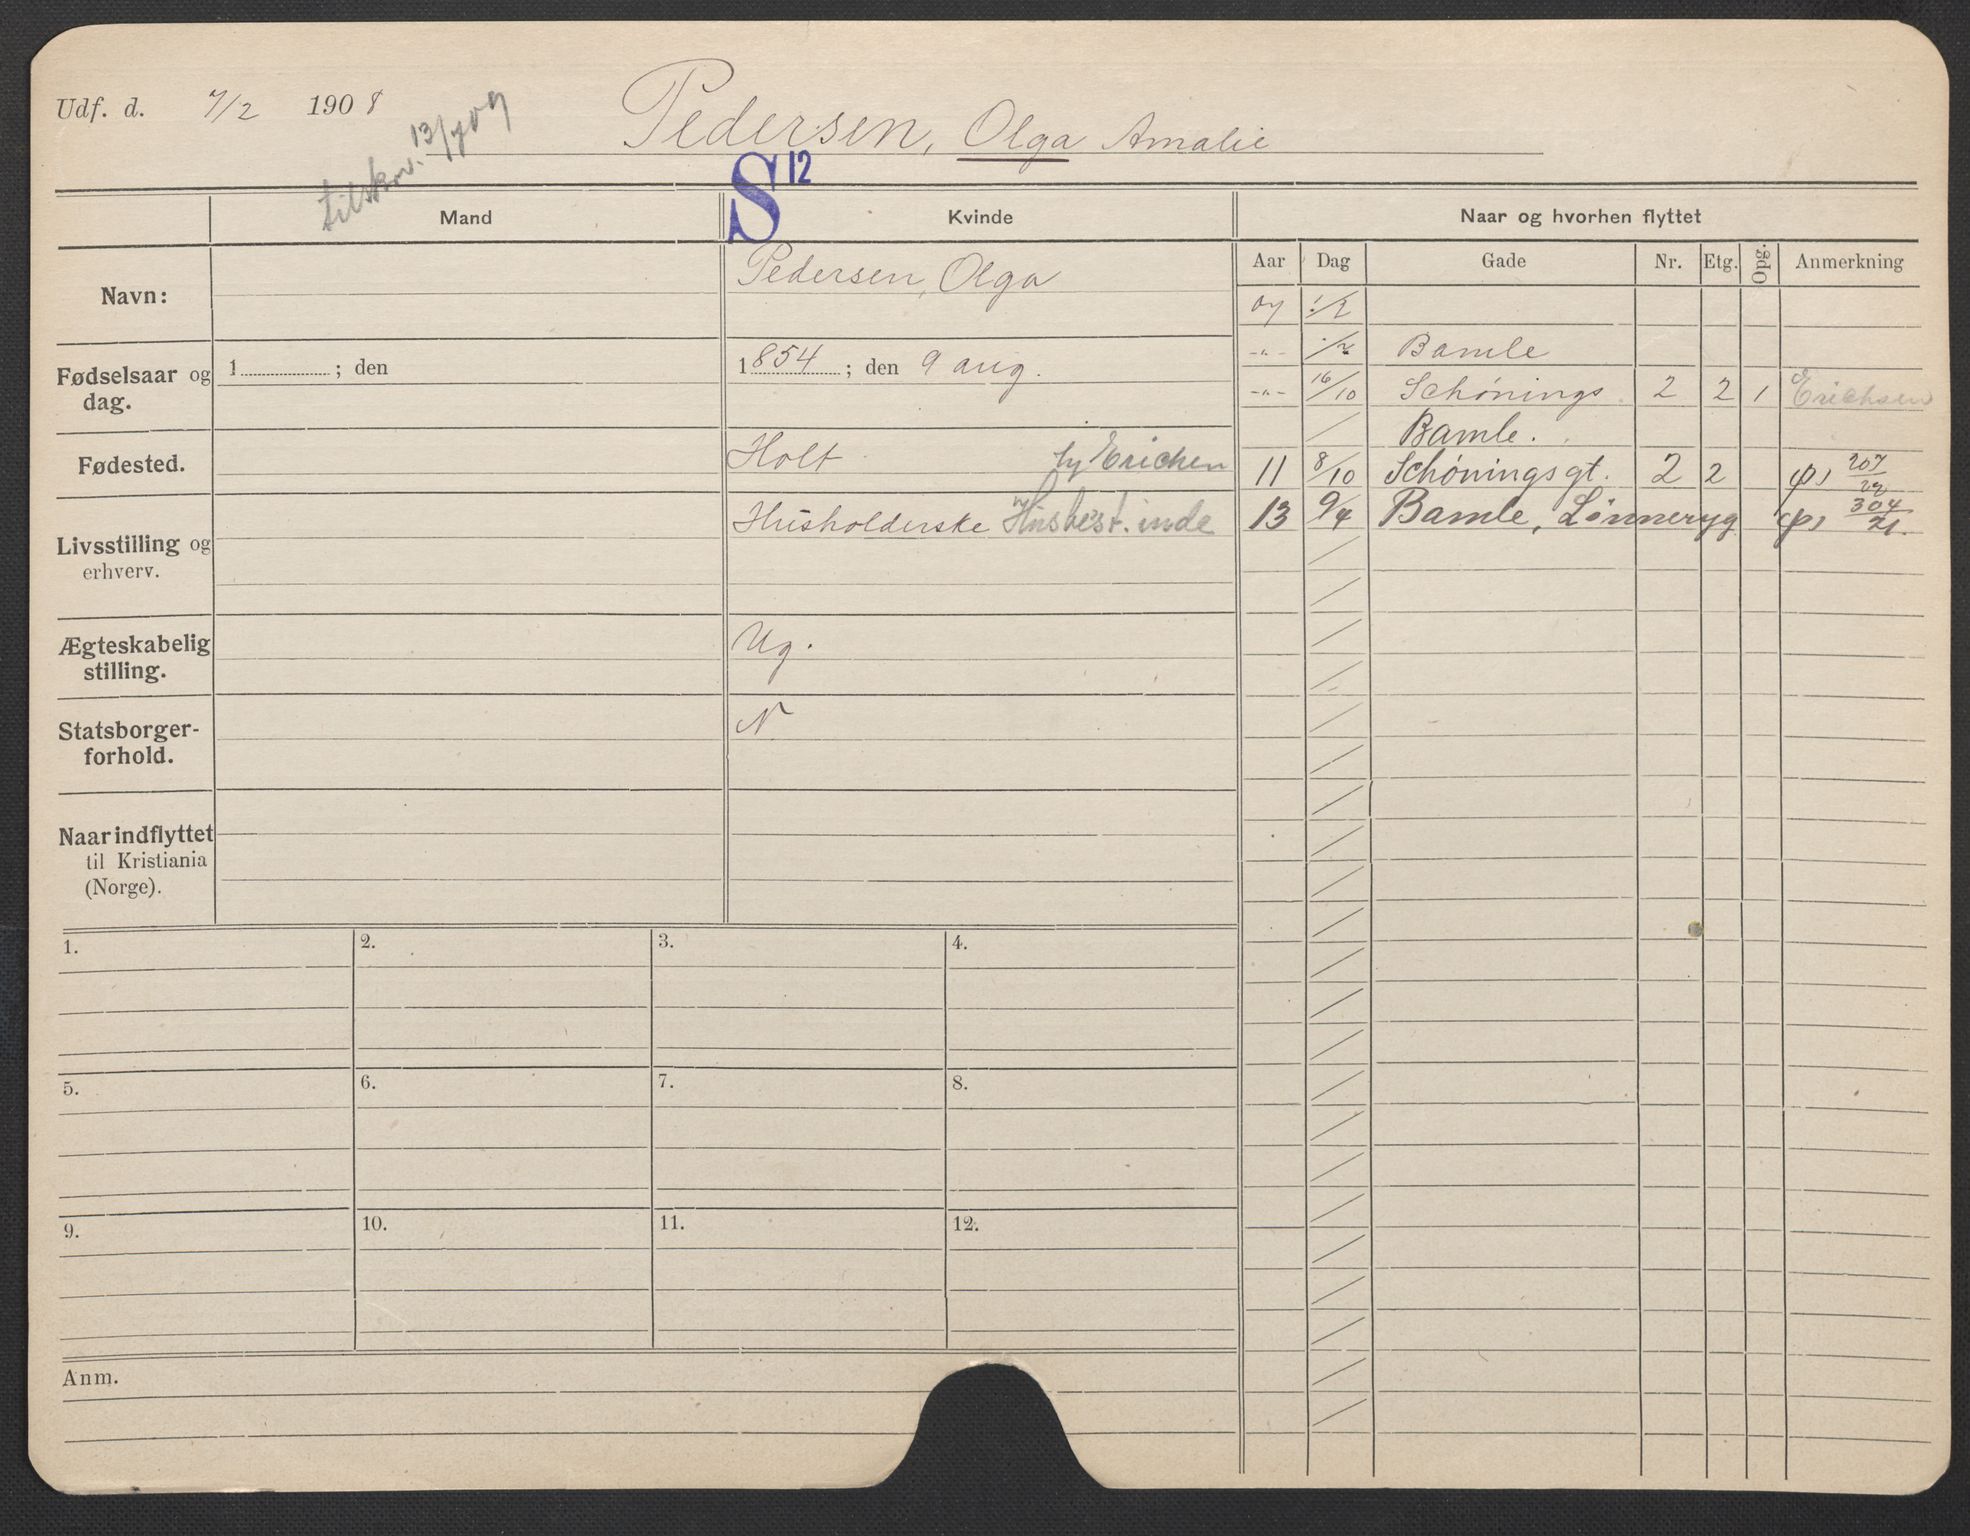 Udf. d. 7/2 1908
Pedersen, Olga Amalie
S 12
Mand
Kvinde
Naar og hvorhen flyttet
Aar Dag Gade Nr. Etg. Opg. Anmerkning
Navn:
Pedersen, Olga
Fødselsaar og dag.
1 ; den
1854 ; den 9 aug.
Fødested.
Holt
hj Ericksen
Livsstilling og erhverv.
Husholderske
Ægteskabelig stilling.
Ug.
Statsborgerforhold.
N
Naar indflyttet til Kristiania (Norge).
07
-"- Bamle
-"- 16/10 Schønings 2 2 1 Erichsen
Bamle.
11 8/10 Schøningsgt. 2 2 207
13 9/4 Bamle, Lønneryg 304 21.
1.
2.
3.
4.
5.
6.
7.
8.
9.
10.
11.
12.
Anm.